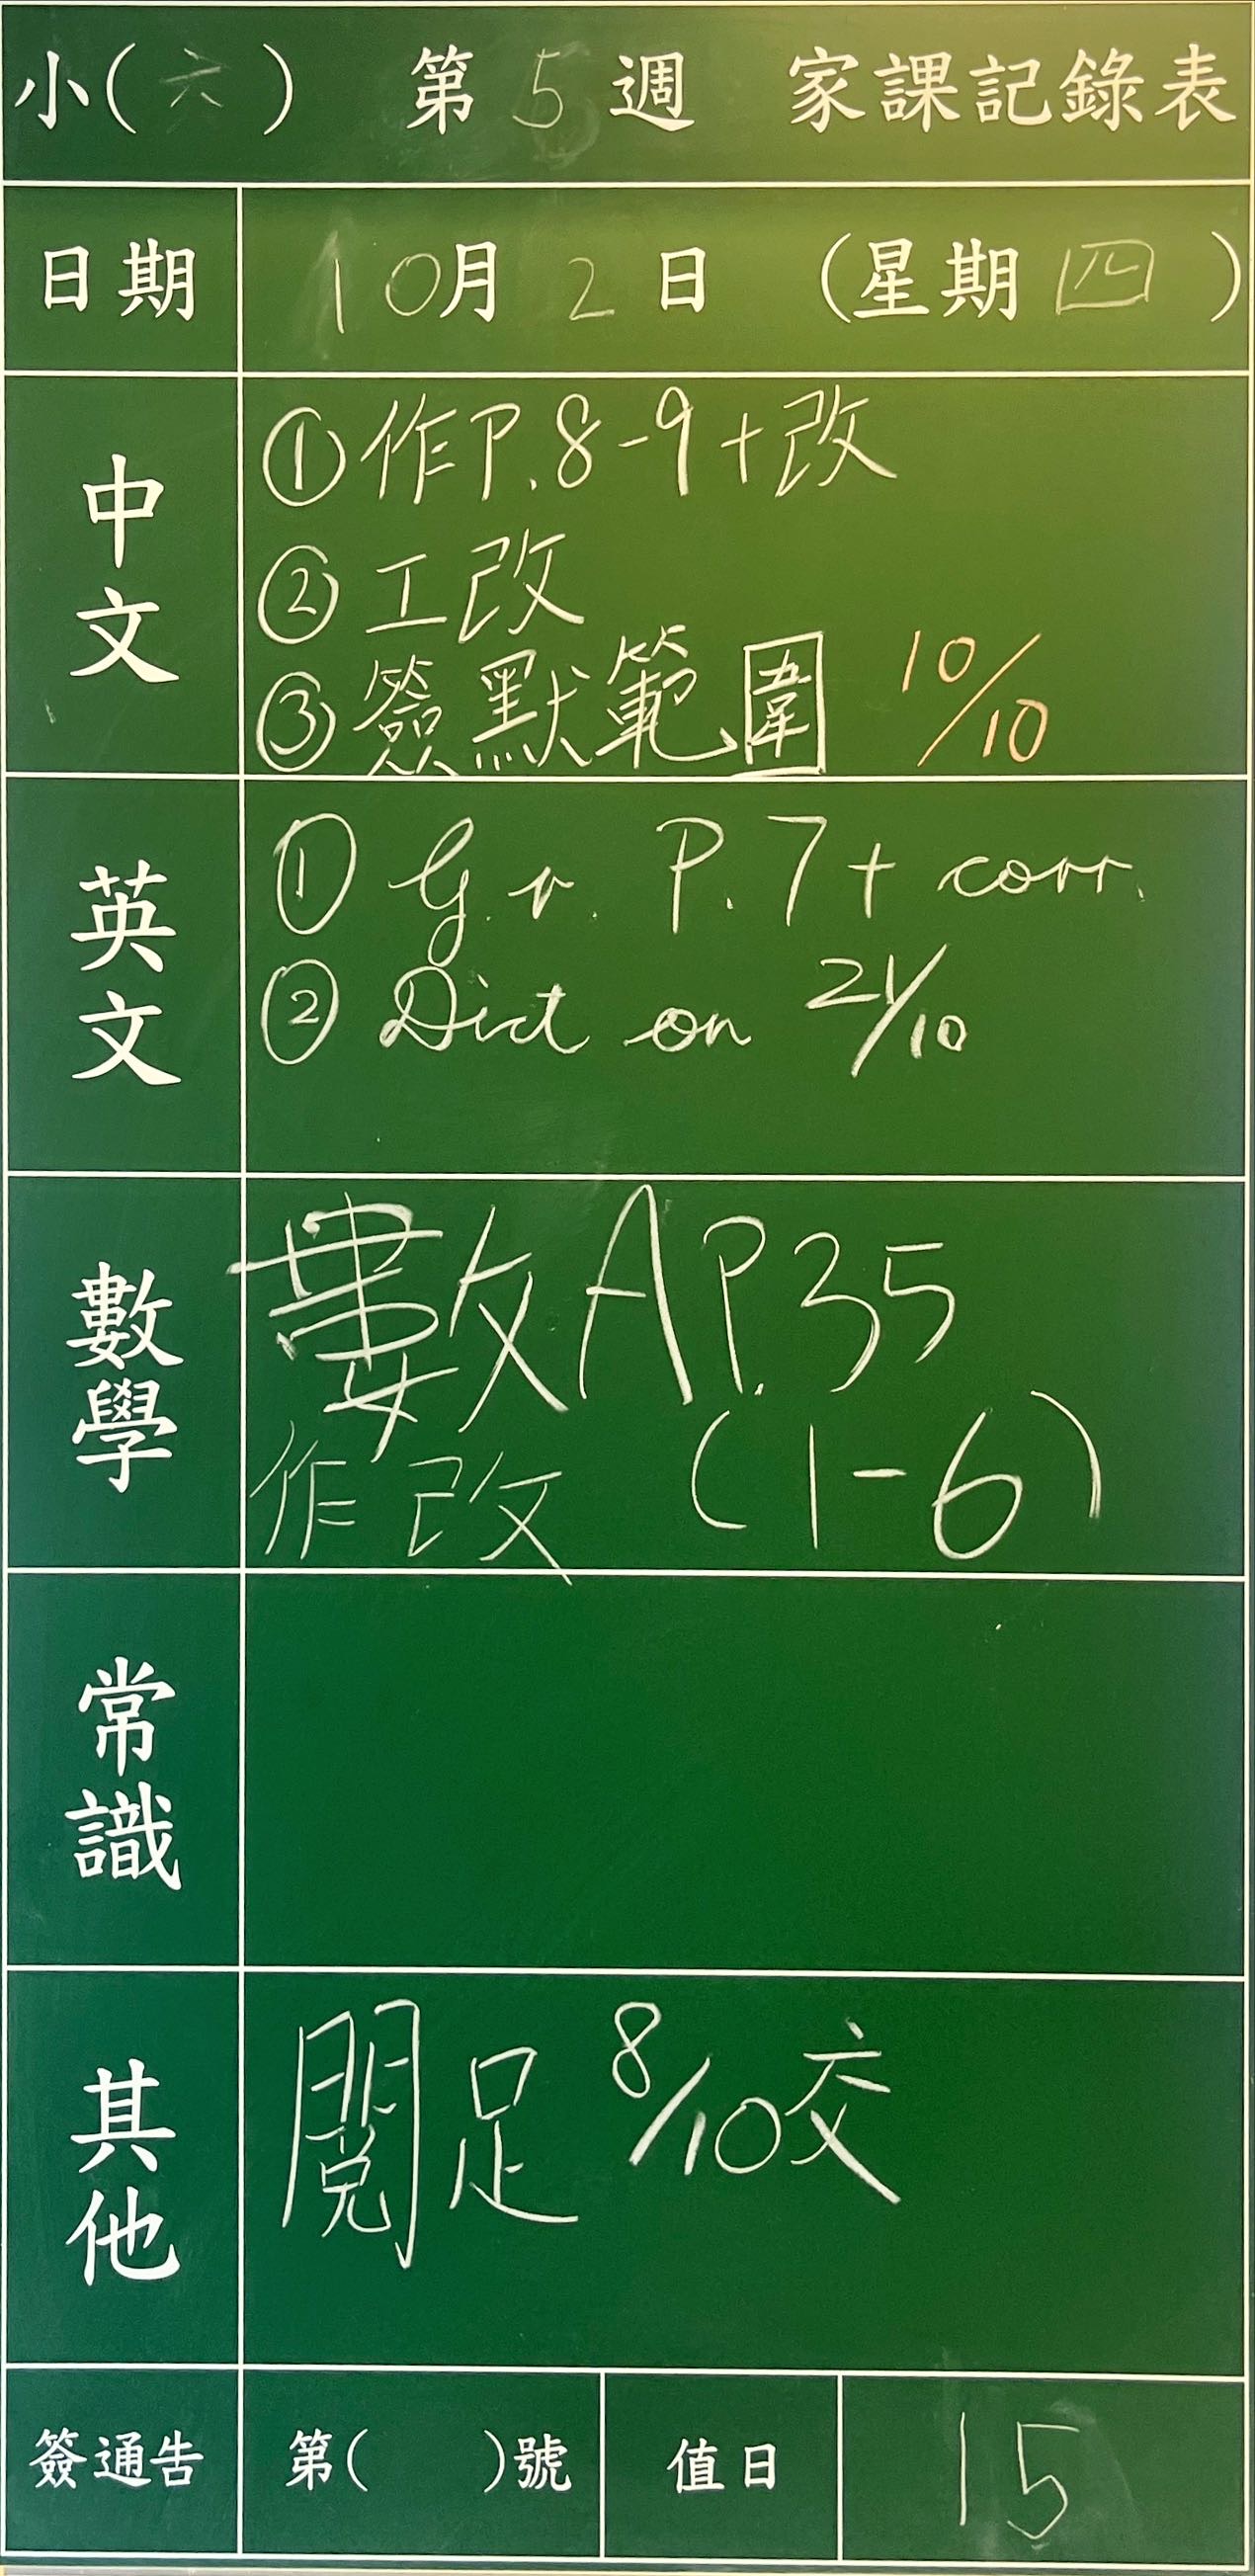 小(六) 第5週 家課記錄表
日期 10月2日 (星期四)
中文
①作P.8-9+改
②工改
③簽默範圍 10/10
英文
① Gr. P.7 + corr.
② Dict on 21/10
數學
數AP.35
作改 (1-6)
常識
其他
閱足 8/10交
簽通告 第( )號 值日 15